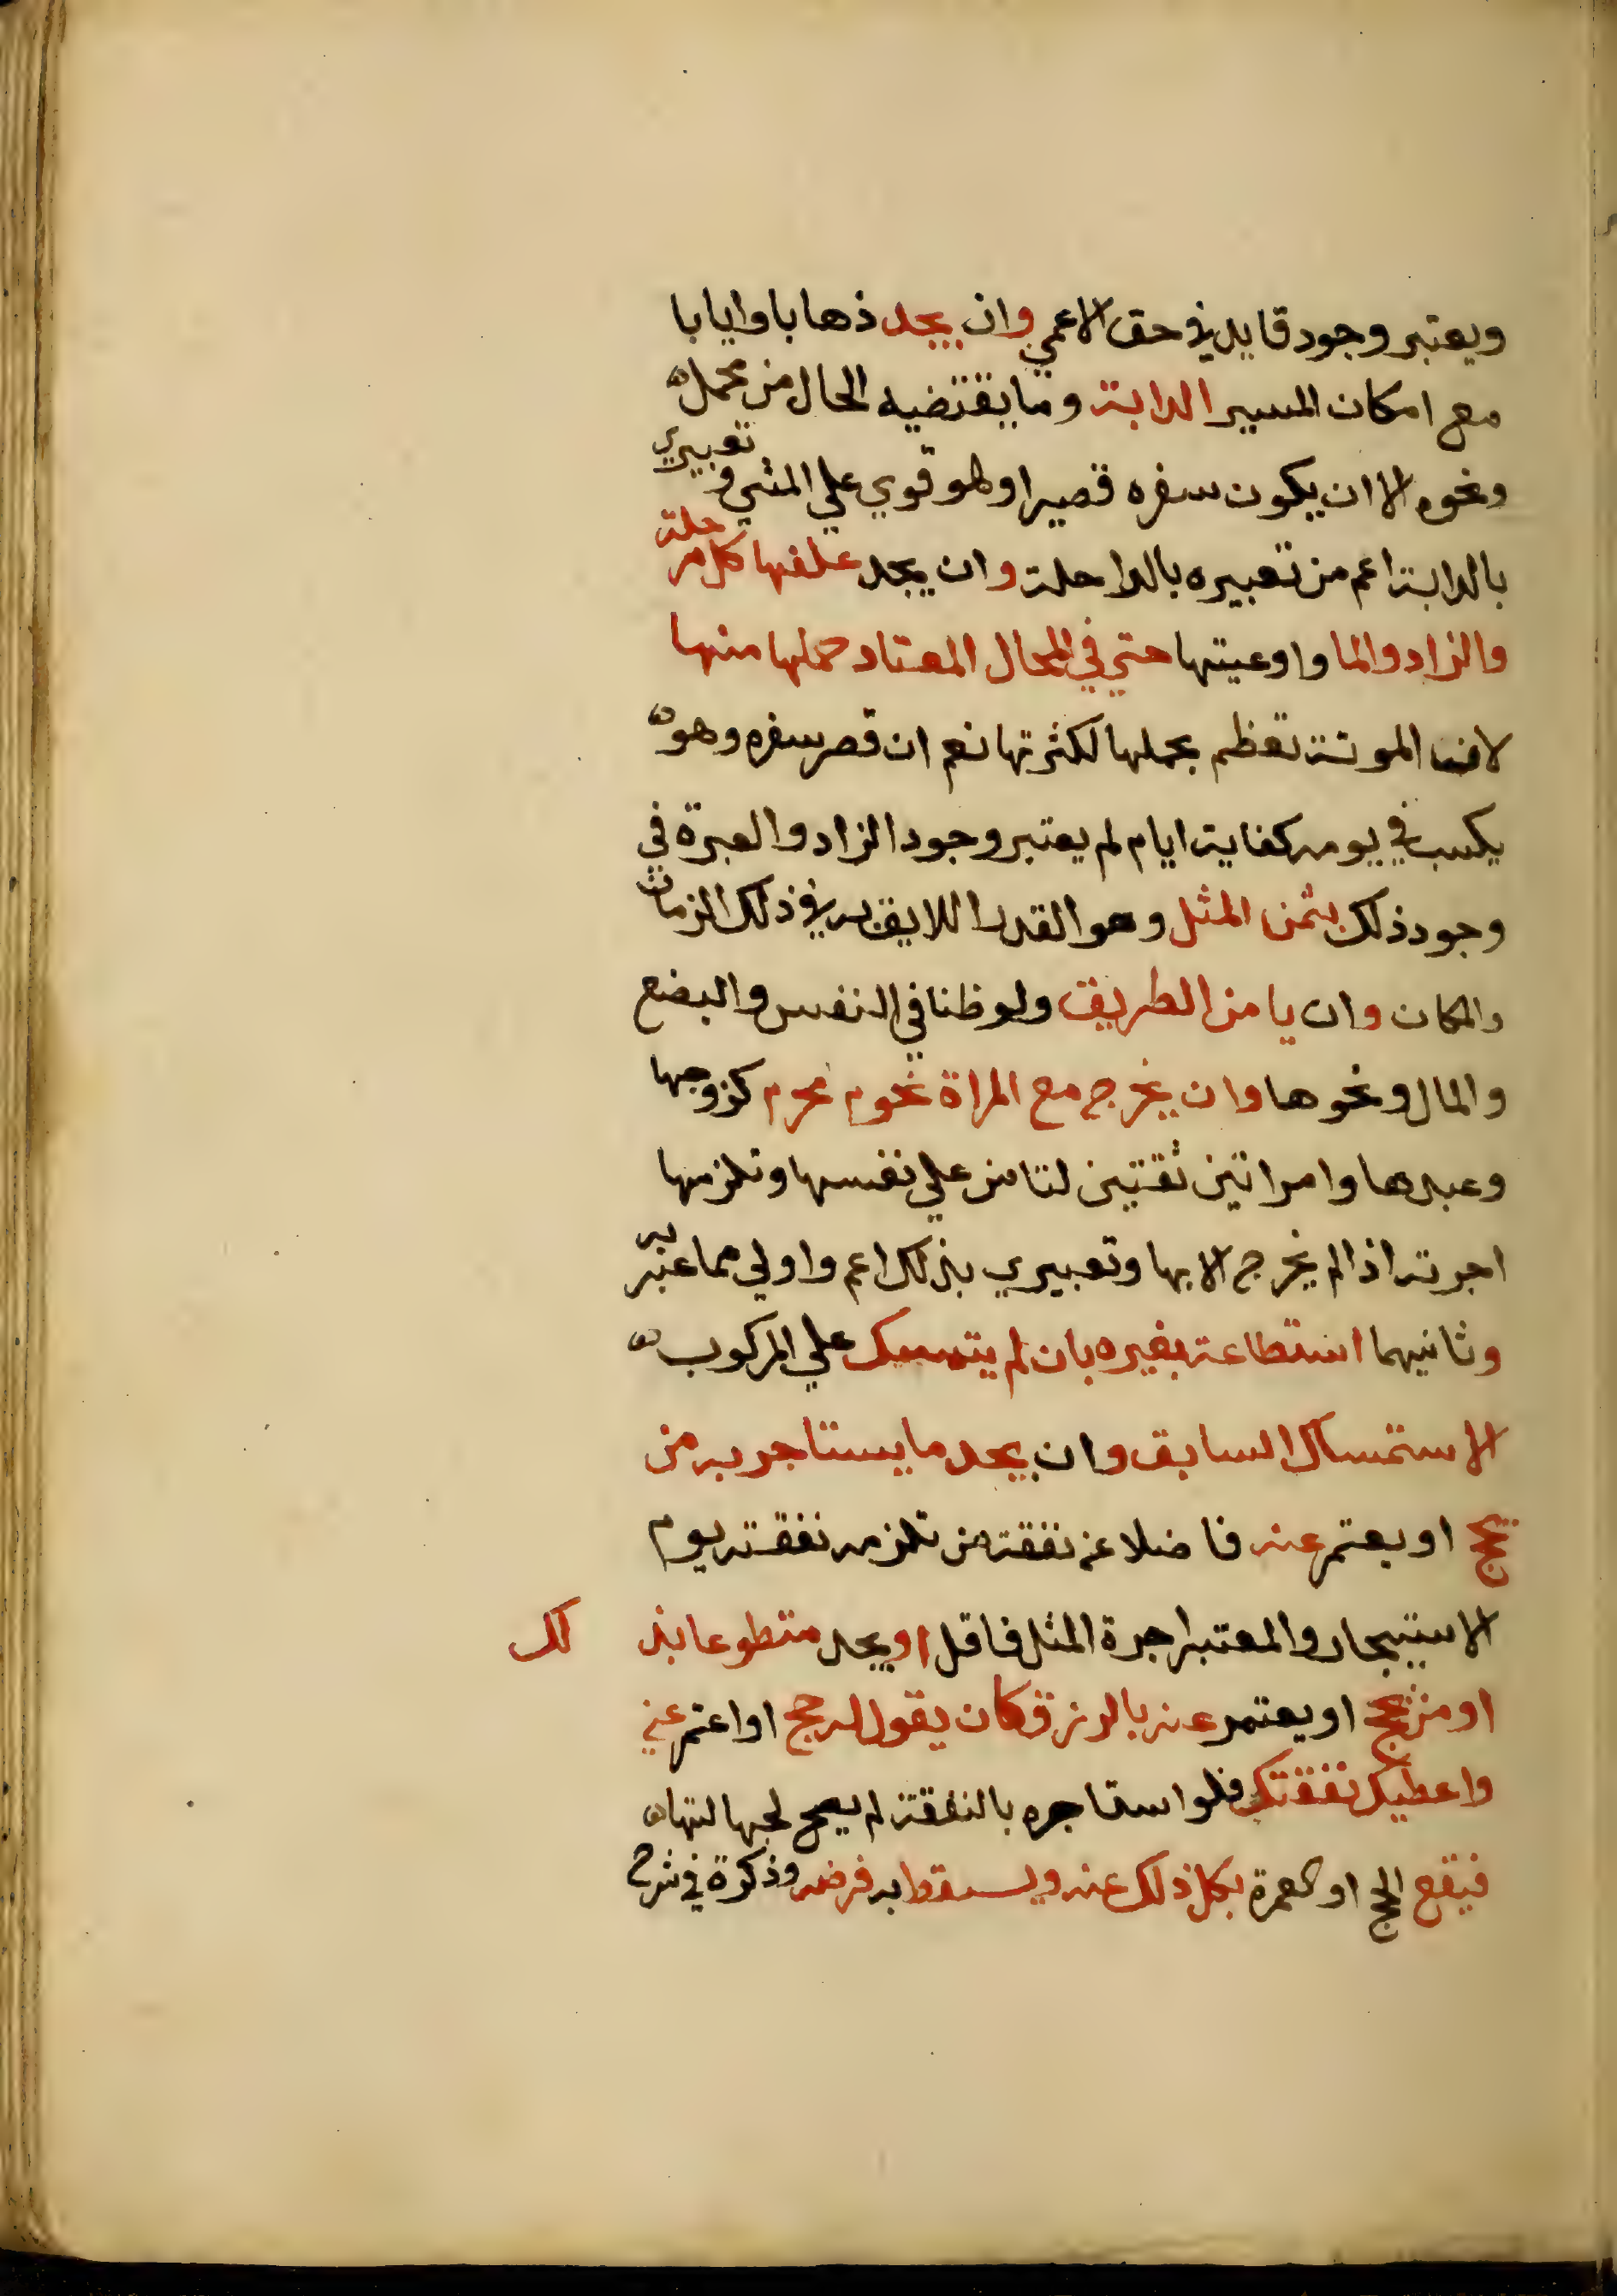 ويعتبر وجود قايد في حق الاعمي وان يجد ذهابا وايابا
مع امكان المسير الدابة وما يقتضيه الحال من محمل
ونحوه الا ان يكون سفره قصيرا وهو قوي علي المشي وتعبيري
بالدابة اعم من تعبيره بالراحلة وان يجد علفها كل مرحلة
والزاد والما واوعيتها حتي في المحال المعتاد حملها منها
لان المونة تعظم بحملها لكثرتها نعم ان قصر سفره وهو
يكسب في يومه كفاية ايام لم يعتبر وجود الزاد والعبرة في
وجود ذلك بثمن المثل وهو القدر اللايق به في ذلك الزمان
والمكان وان يامن الطريق ولو ظنا في النفس والبضع
والمال ونحوها وان يخرج مع المراة نحوم محرم كزوجها
وعبدها وامراتين ثقتين لتامن علي نفسها وتلزمها
اجرته اذا لم يخرج الا بها وتعبيري بذلك اعم واولي مما عبر به
وثانيهما استطاعته بغيره بان لم يتمسك علي المركوب
الاستمساك السابق وان يجد ما يستاجر به من
يحج او يعتمر عنه فاضلا عن نفقة من تلزمه نفقته يوم
الاستيجار والمعتبر اجرة المثل فاقل او يجد متطوعا بذ لك
او من يحج او يعتمر عنه بالرزق كان يقول له حج او اعتمر عني
واعطيك نفقتك فلو استاجره بالنفقة لم يصح لجهالتها
فيقع الحج او العمرة بكل ذلك عنه ويسقط به فرضه وذكره في شرح